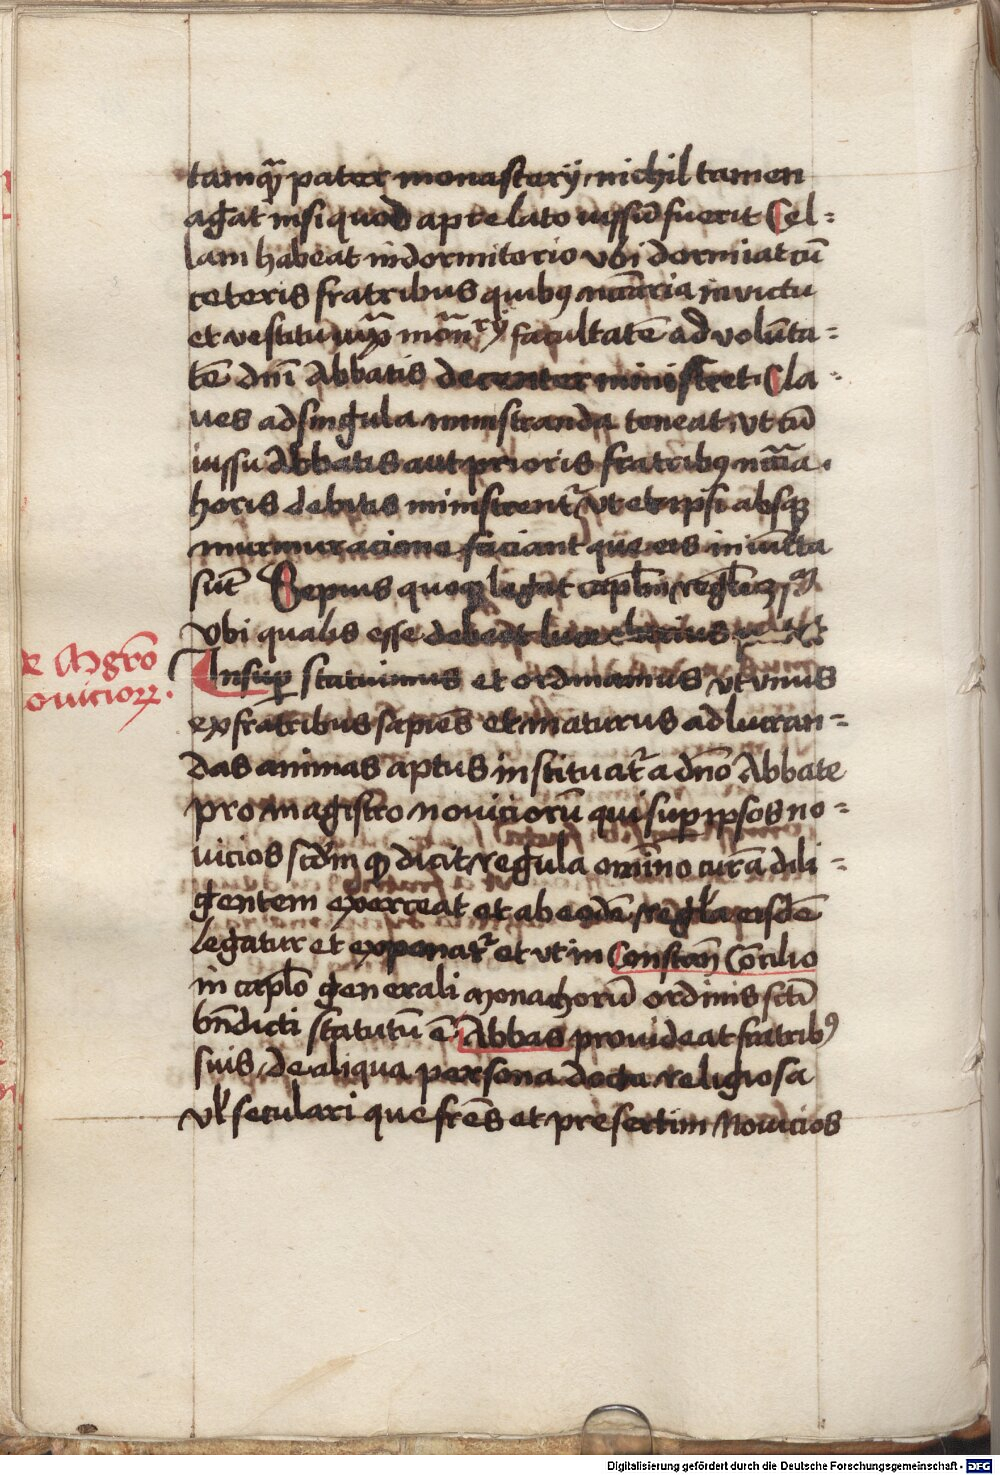 tamq̄ pater monasterij nichil tamen
agat nisi quod a prelato iussū fuerit Cel=
lam habeat in dormitorio vbi dormiat cū
ceteris fratribus quibꝰ nccāria in victu
et vestitu iuxͣ mōn rij facultatē ad volūta=
tē dnī Abbatis decenter ministret Cla=
ues ad singula ministranda teneat vt cū
iussu Abbatis aut prioris fratribꝰ nccīa
horis debitis ministrent᷑ vt et ipsi absqꝫ
murmuracione faciant que eis iniūcta
sūt Sepius quoqꝫ legat capl̄m regl̄e
vbi qualis esse debeat luce clarius
e Mgr̄o
ouicioꝝ.
Insuꝑ statuimus et ordinamus vt vnus
ex fratribus sapiēs et maturus ad lucran=
das animas aptus instituat᷑ a dn̄o Abbate
pro magistro nouiciorū qui suꝑ ipsos no=
uicios scd̄m qꝫ dicit regula om̄ino curā dili=
gentem exerceat et ab eodē regl̄a eisdē
legatur et exponat᷑ et vt in Constan̄ Cōcilio
in capl̄o generali monachorū ordinis sctī
bn̄dicti statutū ē Abbas prouideat fratribꝰ
suis de aliqua persona docta religiosa
vl̄ seculari que frēs et presertim Nouicios
Digitalisierung gefördert durch die Deutsche Forschungsgemeinschaft - DFG